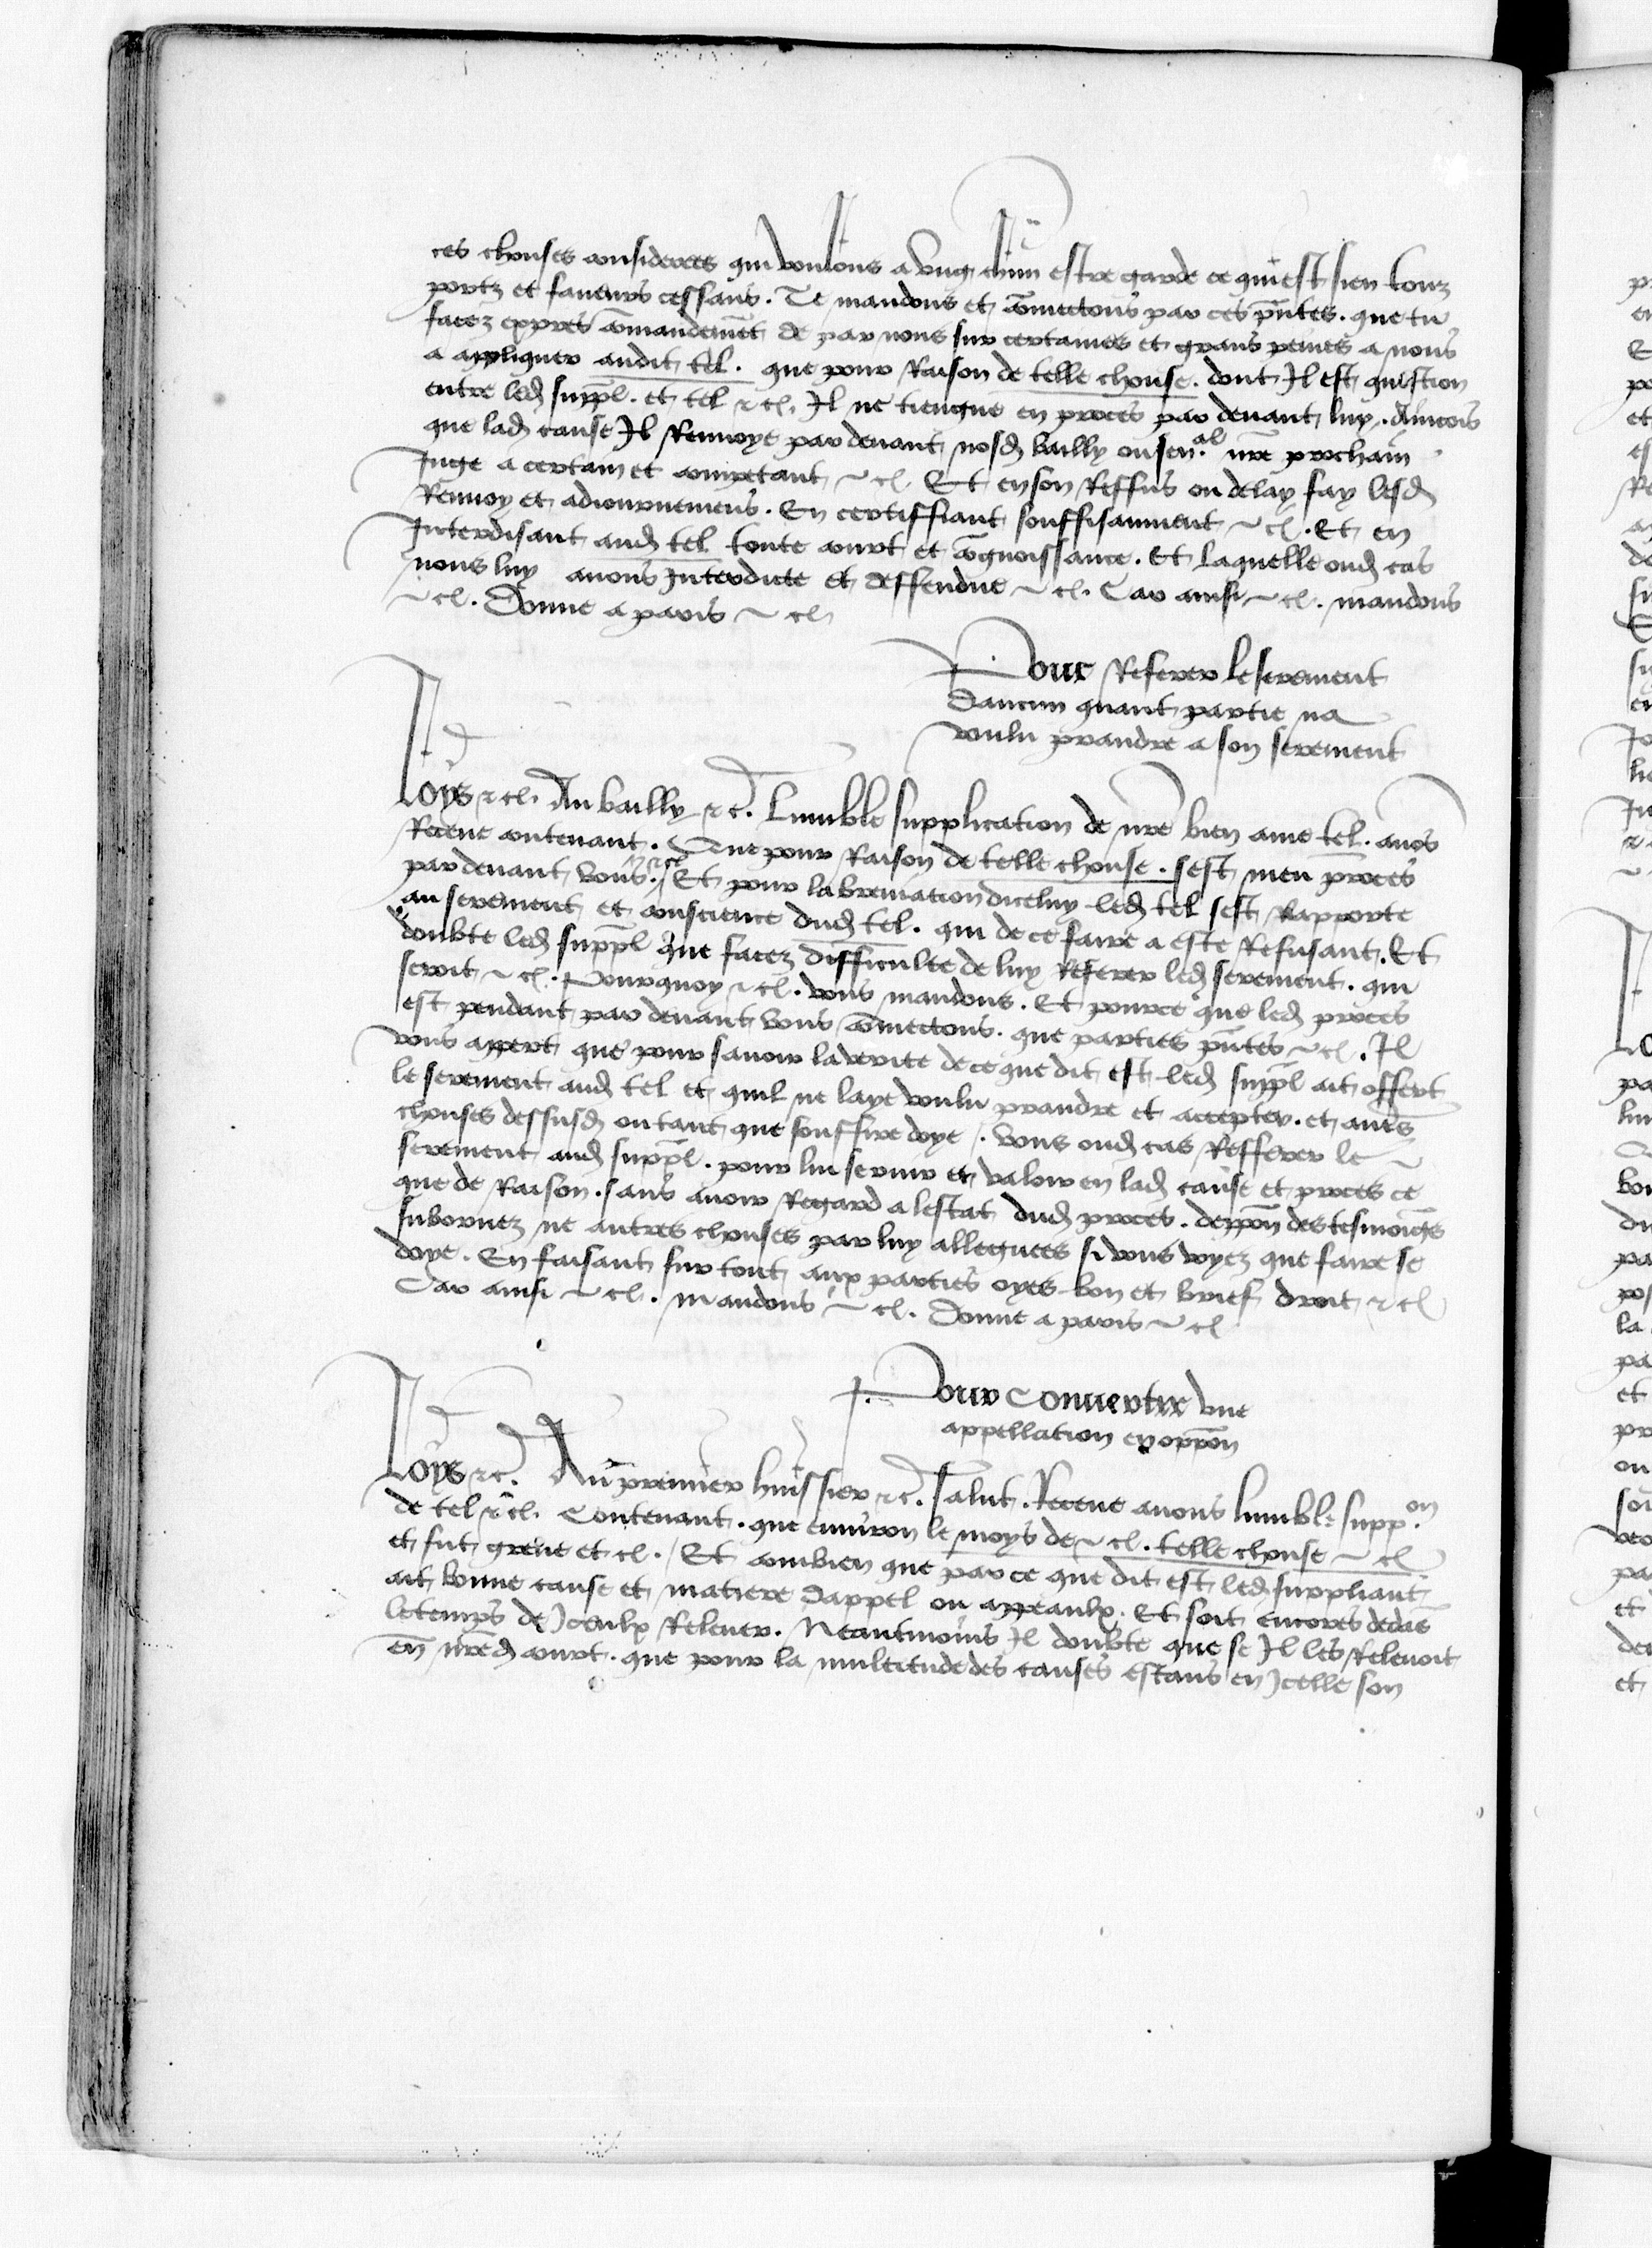 ces chouses considerees qui voulons a vng chun estre garde ce qui est sien touz
portz et faueurs cessans. Te mandons et cōmectons par ces pñtes. que tu
facez expres cōmandemēt de par nous sur certaines et grans peines a nous
a appliquer audit tel. que pour Raison de telle chouse. dont Il est question
entre led suppl. et tel &c. Il ne tiengne en proces par deuant luy. Aincois
que lad cause Il Renuoye par deuant nosd bailly ou sen.al nre prochain
Juge a certain et competant &c. Et en son Reffus ou delay fay lesd
Renuoy et adiournemens. En certiffiant souffisaument &c. Et en
Interdisant aud tel toute court et cōgnoissance. Et laquelle oud cas
nous luy auons Interdicte et deffendue &c. Car ainsi &c. mandons
&c. Donne a paris &c
Pour Referer le serement
Daucun quant partie na
voulu prandre a son serement
Loys &c. Au bailly &c. Lumble supplication de nre bien ame tel. auōs
Receue contenant. Que pour Raison de telle chouse. sest meu proces
par deuant vous. Et pour labreuiation diceluy led tel sest Rapporte
au serement et conscience dud tel. qui de ce faire a este Refusant. Et
doubte led suppl que facez difficulte de luy Referer led serement. qui
seroit &c. Pourquoy &c. vous mandons. Et pource que led proces
est pendant par deuant vous cōmectons. que parties pñtes &c. Il
vous appert que pour sauoir la verite de ce que dit est led suppl ait offert
le serement aud tel et quil ne laye voulu prandre et accepter. et autēs
chouses dessusd ou tant que souffire doye. vous oud cas Refferer le
serement aud suppl. pour lui seruir et valoir en lad cause et proces ce
que de Raison. sans auoir Regard a lestat dud proces. deppōn des tesmoings
subornez ne autres chouses par luy alleguees si vous voyez que faire se
doye. En faisant sur tout aux parties oyes bon et brief droit &c
Car ainsi &c. mandons &c. Donne a paris &c
Pour Conuertir vne
appellation en oppōn
Loys &c. Au premier huissier &c. salut. Receue auons lumble supp.on
de tel &c. Contenant. que enuiron le moys de &c. telle chouse &c
et fut greue et c. Et combien que par ce que dit est led suppliant
ait bonne cause et matiere dappel ou appeaulx. Et soit encores dedās
le temps de Iceulx Releuer. Neantmoins Il doubte que se Il les Releuoit
en nred court. que pour la multitude des causes estans en Icelle son